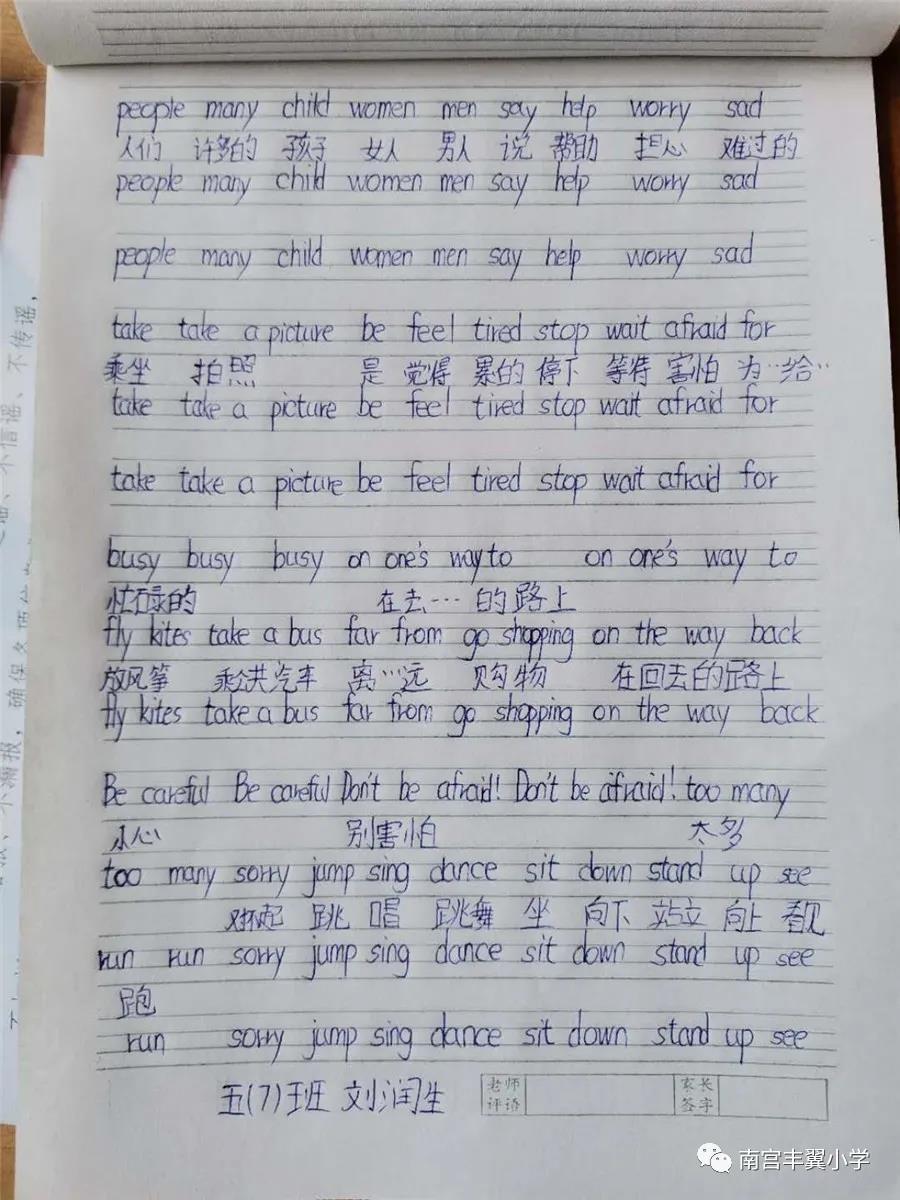 people many child women men say help worry sad
人们 许多的 孩子 女人 男人 说 帮助 担心 难过的
people many child women men say help worry sad
people many child women men say help worry sad
take take a picture be feel tired stop wait afraid for
乘坐 拍照 是 觉得 累的 停下 等待 害怕 为…给…
take take a picture be feel tired stop wait afraid for
take take a picture be feel tired stop wait afraid for
busy busy busy on one's way to on one's way to
忙碌的 在去…的路上
fly kites take a bus far from go shopping on the way back
放风筝 乘公共汽车 离…远 购物 在回去的路上
fly kites take a bus far from go shopping on the way back
Be careful Be careful Don't be afraid! Don't be afraid! too many
小心 别害怕 太多
too many sorry jump sing dance sit down stand up see
对不起 跳 唱 跳舞 坐 向下 站立 向上 看见
run run sorry jump sing dance sit down stand up see
跑
run sorry jump sing dance sit down stand up see
五(7)班 刘润生
老师评语 家长签字
南宫丰翼小学
不信谣、不传谣,